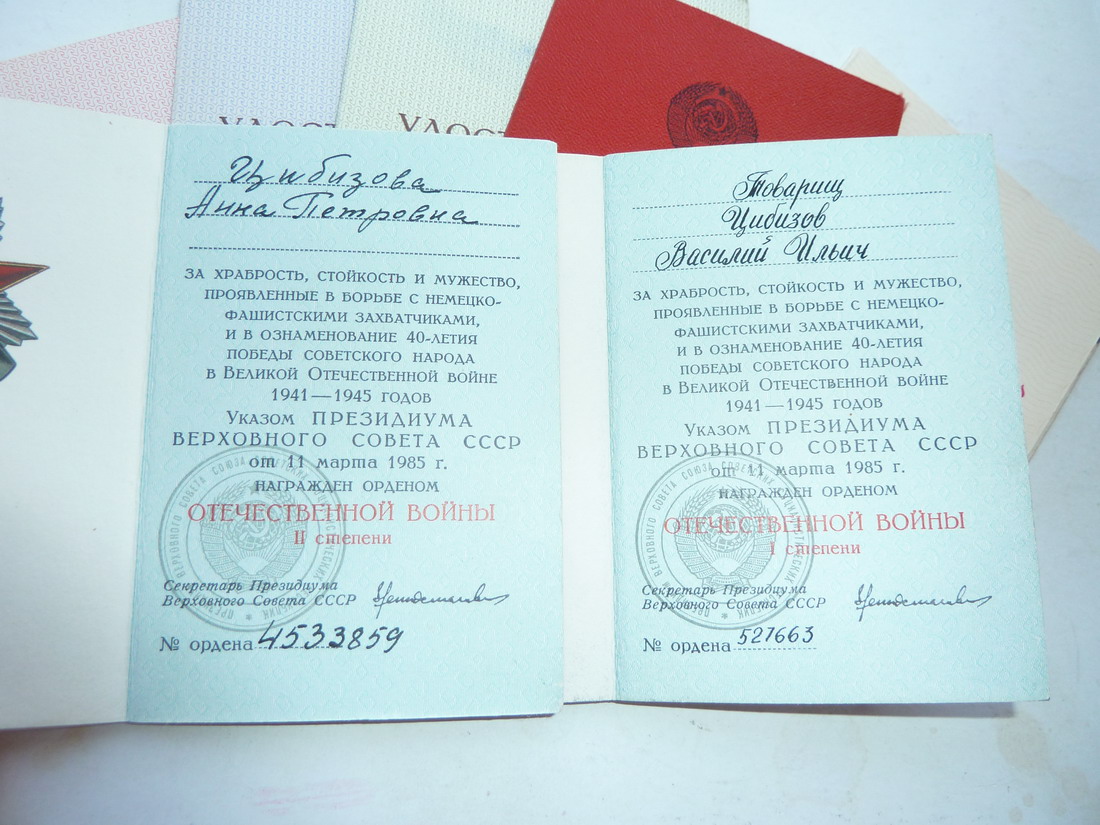 УДОСТ
УДОСТ
Цибизова
Анна Петровна
ЗА ХРАБРОСТЬ, СТОЙКОСТЬ И МУЖЕСТВО,
ПРОЯВЛЕННЫЕ В БОРЬБЕ С НЕМЕЦКО-
ФАШИСТСКИМИ ЗАХВАТЧИКАМИ,
И В ОЗНАМЕНОВАНИЕ 40-ЛЕТИЯ
ПОБЕДЫ СОВЕТСКОГО НАРОДА
В ВЕЛИКОЙ ОТЕЧЕСТВЕННОЙ ВОЙНЕ
1941—1945 ГОДОВ
УКАЗОМ ПРЕЗИДИУМА
ВЕРХОВНОГО СОВЕТА СССР
от 11 марта 1985 г.
НАГРАЖДЕН ОРДЕНОМ
ОТЕЧЕСТВЕННОЙ ВОЙНЫ
II степени
Секретарь Президиума
Верховного Совета СССР
№ ордена 4533859
Товарищ
Цибизов
Василий Ильич
ЗА ХРАБРОСТЬ, СТОЙКОСТЬ И МУЖЕСТВО,
ПРОЯВЛЕННЫЕ В БОРЬБЕ С НЕМЕЦКО-
ФАШИСТСКИМИ ЗАХВАТЧИКАМИ,
И В ОЗНАМЕНОВАНИЕ 40-ЛЕТИЯ
ПОБЕДЫ СОВЕТСКОГО НАРОДА
В ВЕЛИКОЙ ОТЕЧЕСТВЕННОЙ ВОЙНЕ
1941—1945 ГОДОВ
УКАЗОМ ПРЕЗИДИУМА
ВЕРХОВНОГО СОВЕТА СССР
от 11 марта 1985 г.
НАГРАЖДЕН ОРДЕНОМ
ОТЕЧЕСТВЕННОЙ ВОЙНЫ
I степени
Секретарь Президиума
Верховного Совета СССР
№ ордена 527663